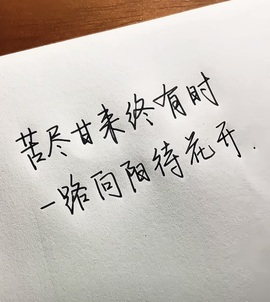 苦尽甘来终有时
一路向阳待花开.